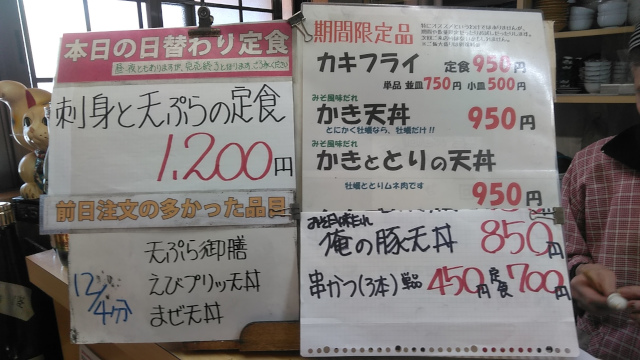 本日の日替わり定食
刺身と天ぷらの定食
1,200円
前日注文の多かった品目
12/4分
天ぷら御膳
えびプリッ天丼
まぜ天丼
期間限定品
カキフライ 定食 950円
単品 並皿750円 小皿500円
みそ風味だれ
かき天丼 950円
とにかく牡蠣なら、牡蠣だけ!!
みそ風味だれ
かきととりの天丼
牡蠣ととりムネ肉です
950円
みそ風味だれ
俺の豚天丼 850円
串かつ(3本) 単品450円 定食700円